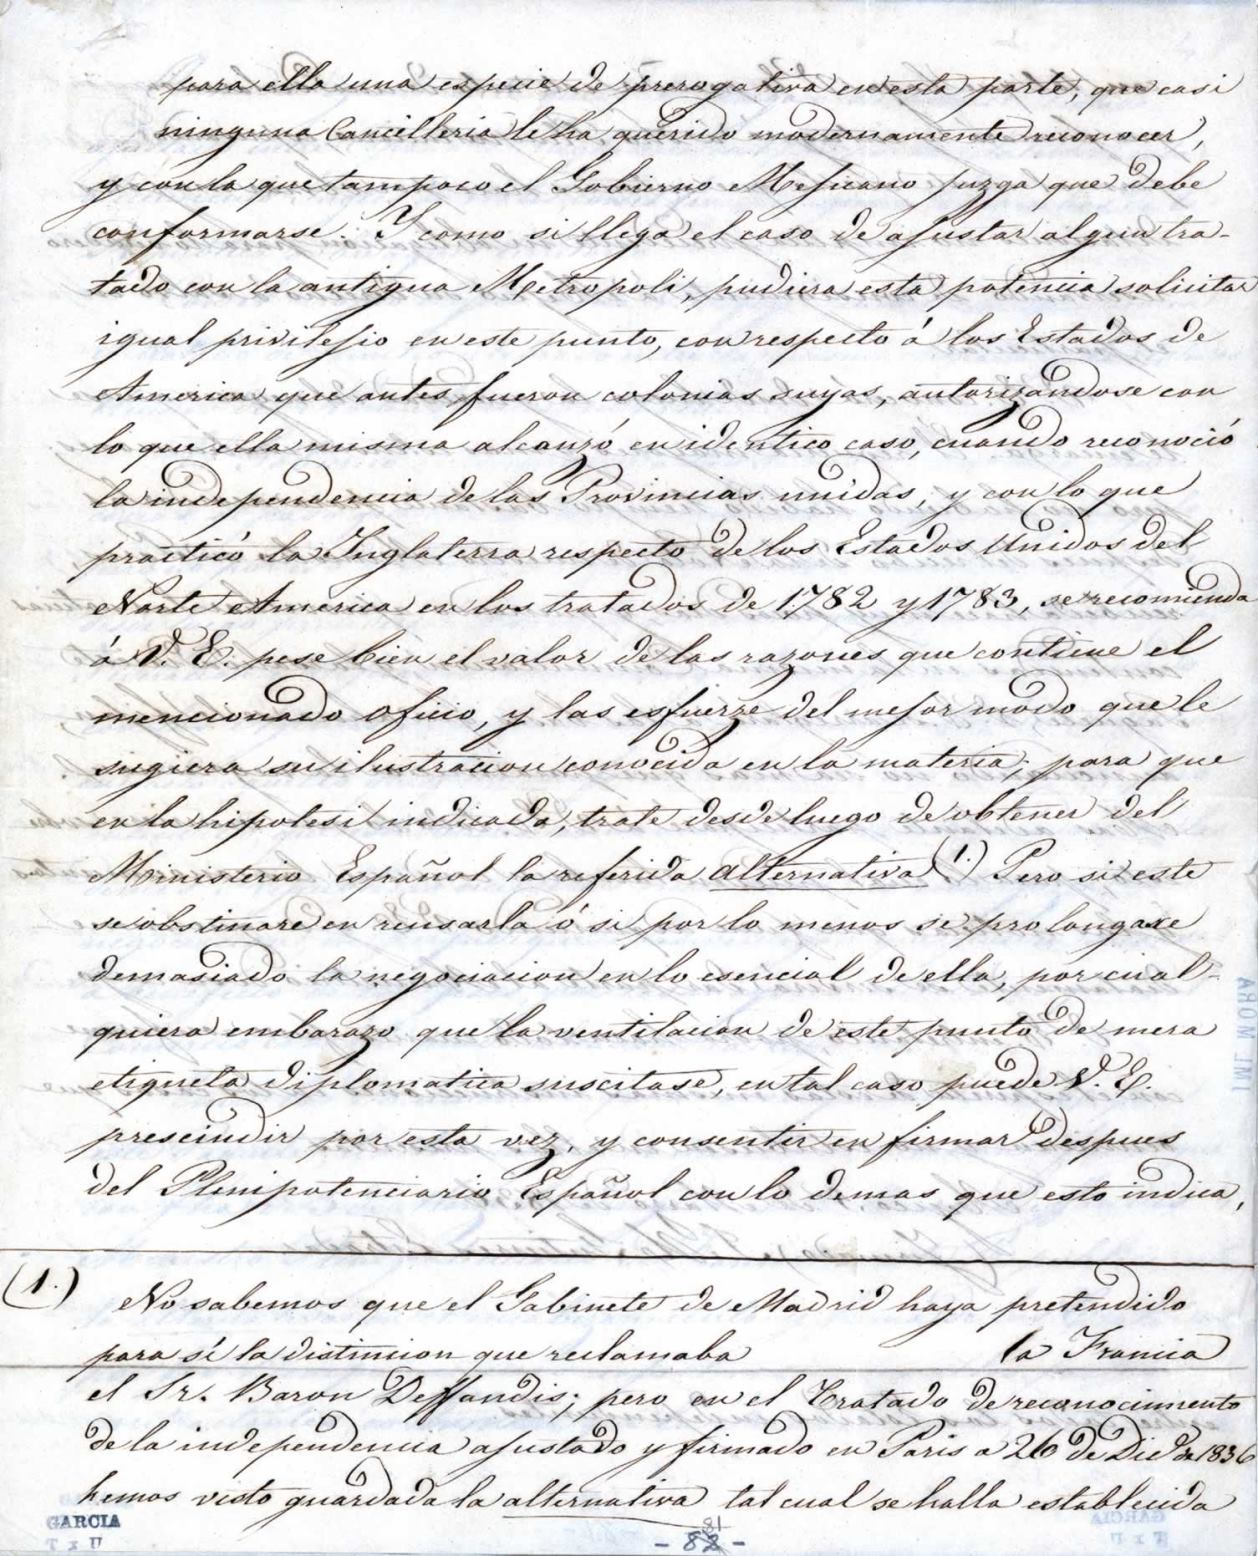 para ella una especie de prerogativa en esta parte, que casi
ninguna Cancilleria le ha querido modernamente reconocer,
y con la que tampoco el Gobierno Mejicano juzga que debe
conformarse. Y como si llega el caso de ajustar algun tra-
tado con la antigua Metropoli, pudiera esta potencia solicitar
igual privilejio en este punto, con respecto á los Estados de
America que antes fueron colonias suyas, autorizandose con
lo que ella misma alcanzó en identico caso, cuando reconoció
la independencia de las Provincias unidas, y con lo que
practicó la Inglaterra respecto de los Estados Unidos del
Norte America en los tratados de 1782 y 1783, se recomienda
á V. E. pese bien el valor de las razones que contiene el
mencionado oficio, y las esfuerze del mejor modo que le
sugiera su ilustracion conocida en la materia; para que
en la hipotesi indicada, trate desde luego de obtener del
Ministerio Español la referida alternativa (1.) Pero si este
se obstinare en reusarla ó si por lo menos se prolongase
demasiado la negociacion en lo esencial de ella, por cual-
quiera embarazo que la ventilacion de este punto de mera
etiqueta diplomatica suscitase, en tal caso puede V. E.
prescindir por esta vez, y consentir en firmar despues
del Plenipotenciario Español con lo demas que esto indica,
(1.) No sabemos que el Gabinete de Madrid haya pretendido
para sí la distincion que reclamaba la Francia
el Sr. Baron Deffandis; pero en el Tratado de reconocimento
de la independencia ajustado y firmado en Paris a 26 de Dic.e de 1836
hemos visto guardada la alternativa tal cual se halla establecida
GARCIA
81
- 88 -